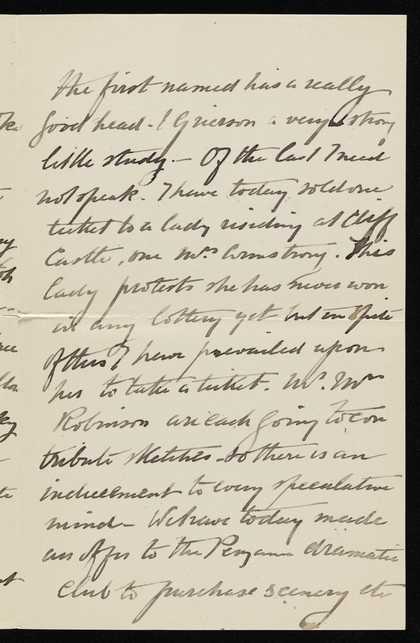 the first named has a really
good head. I Grierson a very strong
little study. — Of the last I need
not speak. I have today sold one
ticket to a lady residing at Cliff
Castle, one Mrs Armstrong. This
lady protests she has never won
in any lottery yet but in spite
of this I have prevailed upon
her to take a ticket. Mr. Mrs
Robinson are each going to con
tribute sketches - so there is an
inducement to every speculative
mind — We have today made
an offer to the Penzance dramatic
Club to purchase scenery etc